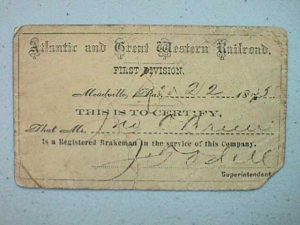 Atlantic and Great Western Railroad.
FIRST DIVISION.
Meadville, Pa. 22 18
THIS IS TO CERTIFY,
That Mr.
Is a Registered Brakeman in the service of this Company.
Superintendent